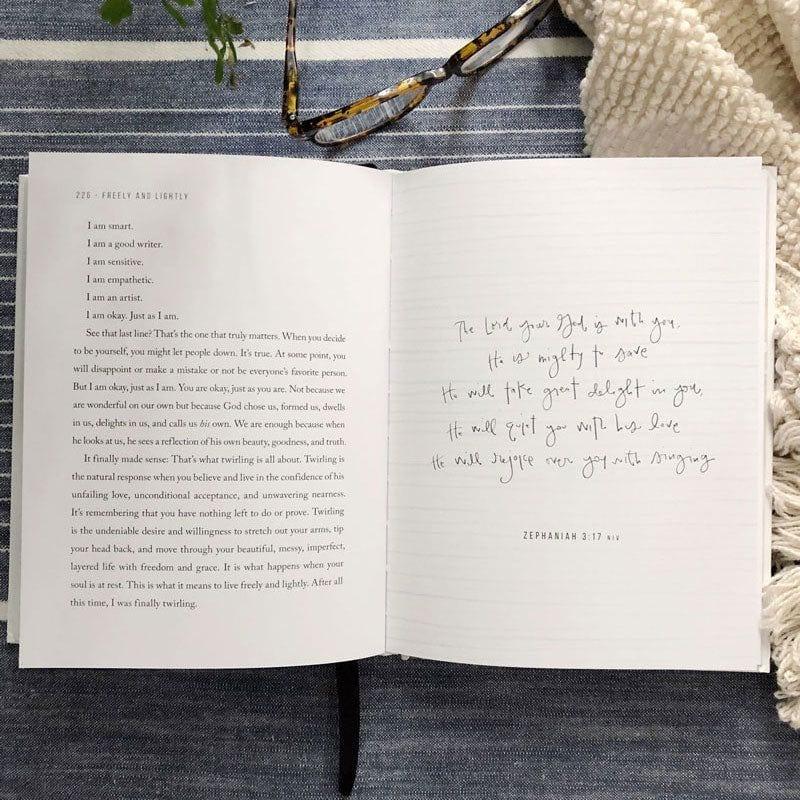 226 · FREELY AND LIGHTLY
I am smart.
I am a good writer.
I am sensitive.
I am empathetic.
I am an artist.
I am okay. Just as I am.
See that last line? That's the one that truly matters. When you decide
to be yourself, you might let people down. It's true. At some point, you
will disappoint or make a mistake or not be everyone's favorite person.
But I am okay, just as I am. You are okay, just as you are. Not because we
are wonderful on our own but because God chose us, formed us, dwells
in us, delights in us, and calls us his own. We are enough because when
he looks at us, he sees a reflection of his own beauty, goodness, and truth.
It finally made sense: That's what twirling is all about. Twirling is
the natural response when you believe and live in the confidence of his
unfailing love, unconditional acceptance, and unwavering nearness.
It's remembering that you have nothing left to do or prove. Twirling
is the undeniable desire and willingness to stretch out your arms, tip
your head back, and move through your beautiful, messy, imperfect,
layered life with freedom and grace. It is what happens when your
soul is at rest. This is what it means to live freely and lightly. After all
this time, I was finally twirling.
The Lord your God is with you,
He is mighty to save
He will take great delight in you,
He will quiet you with his love
He will rejoice over you with singing
ZEPHANIAH 3:17 NIV